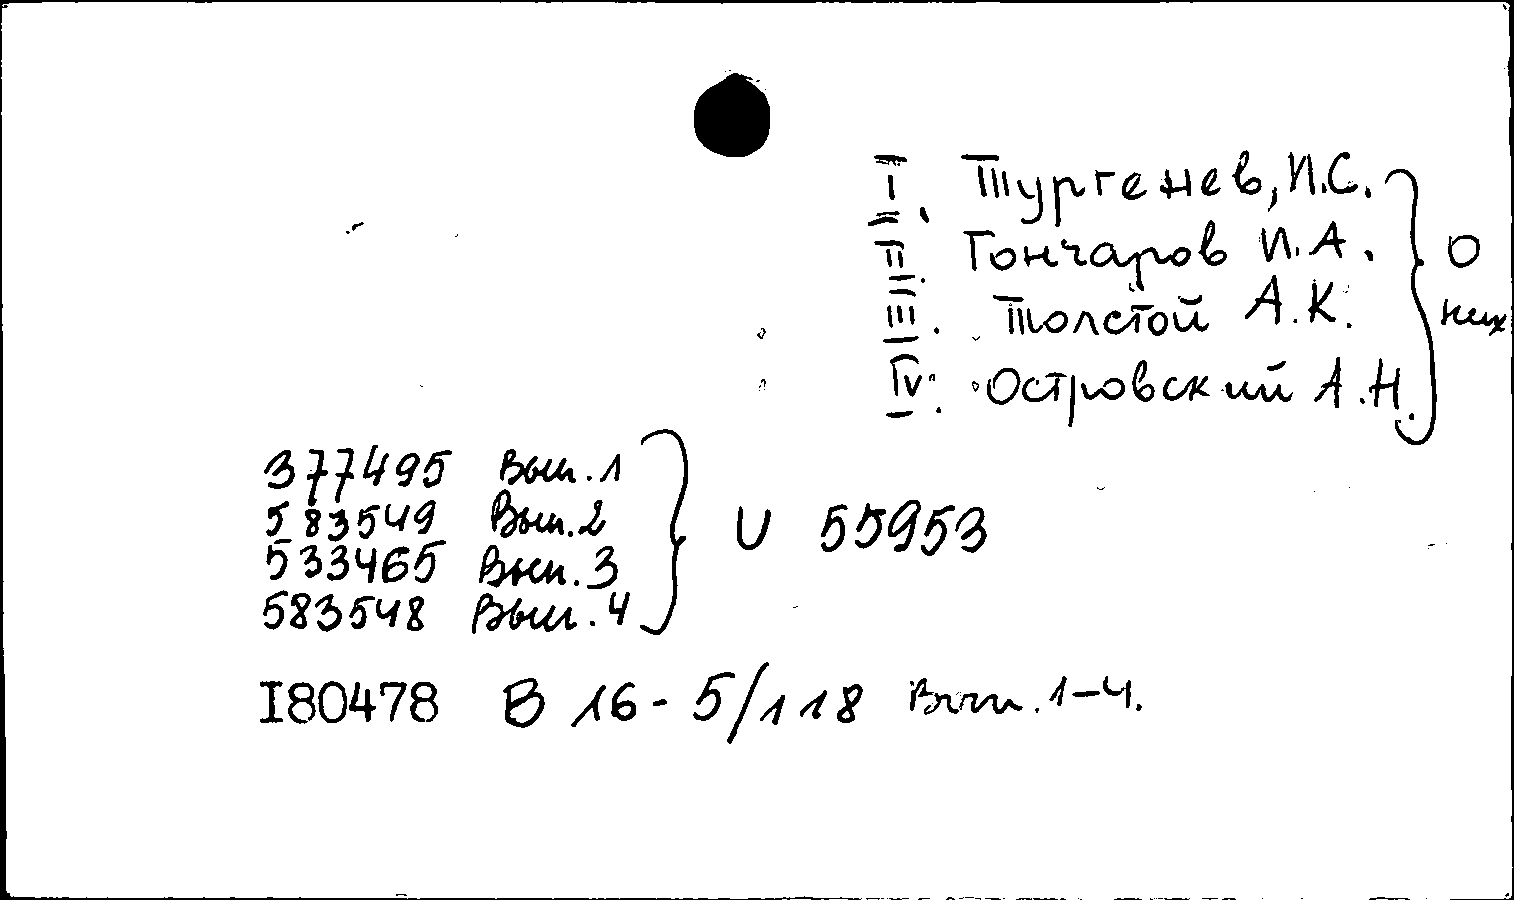 I. Тургенев, И.С.
II. Гончаров И.А. } О
III. Толстой А.К. них
IV. Островский А.Н.
377495 Вып. 1
583549 Вып. 2 } U 55953
533465 Вып. 3
583548 Вып. 4
I80478 В 16-5/118 Вып. 1-4.